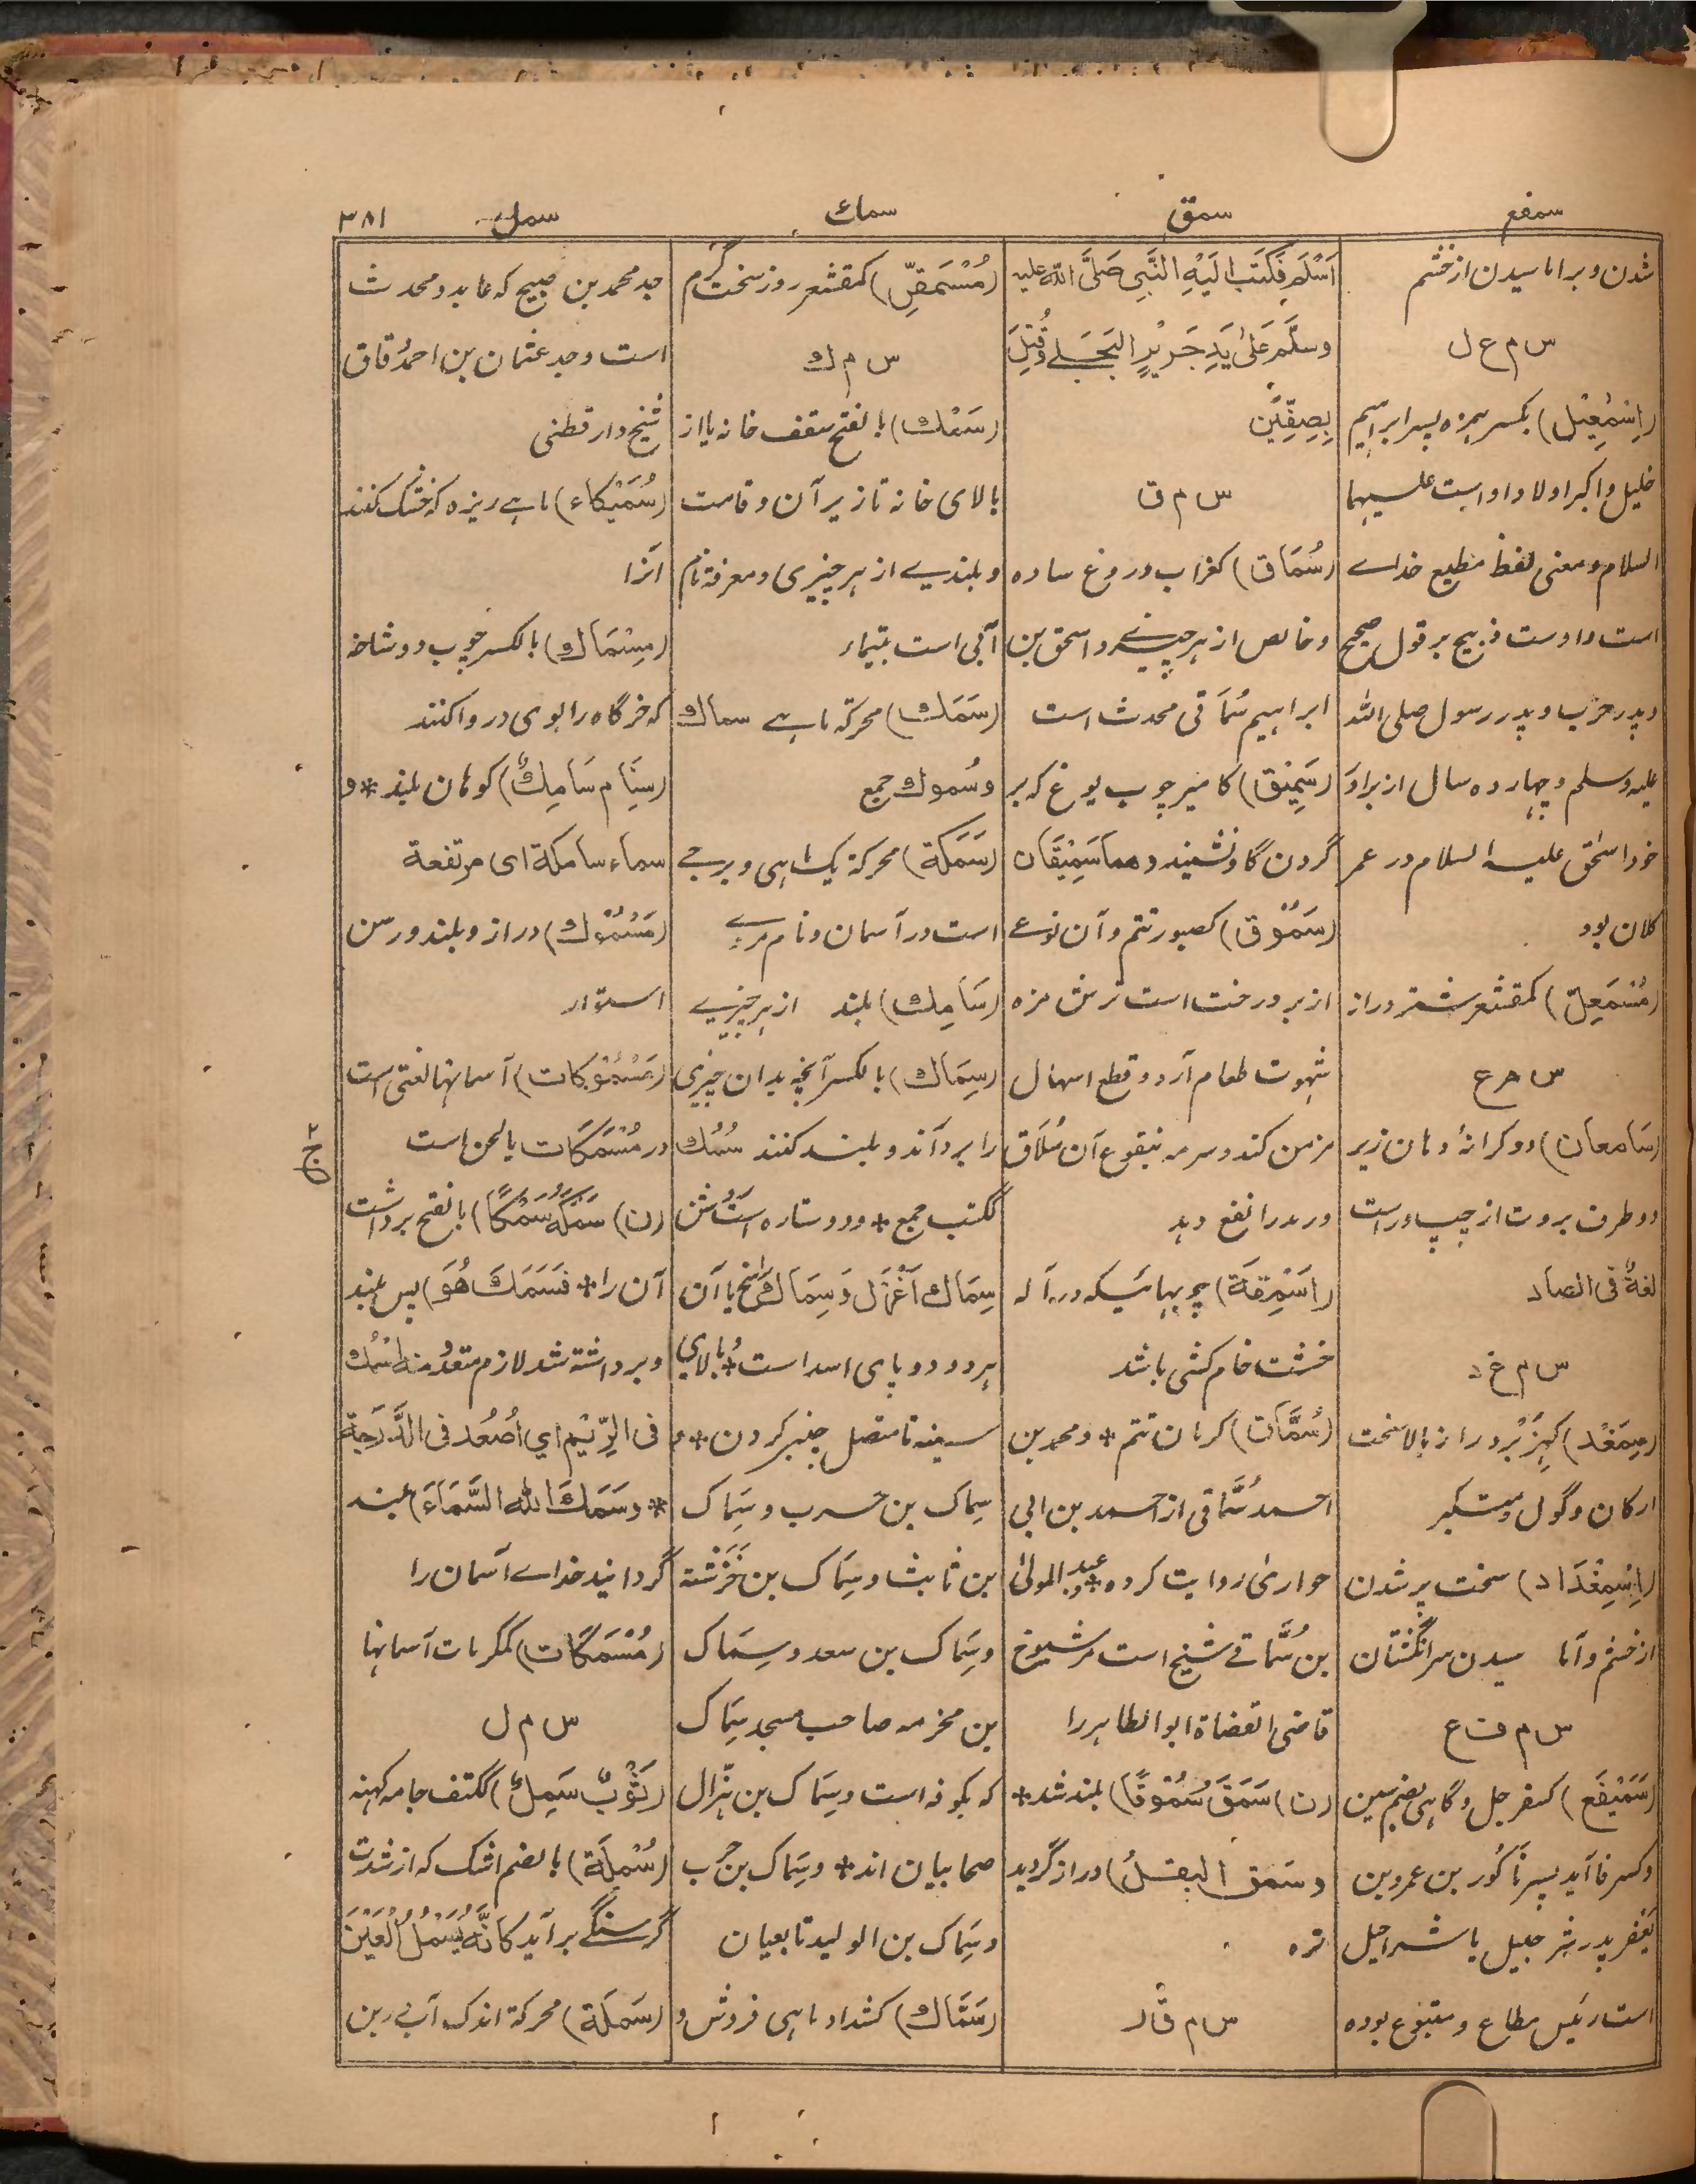 سمفع
سمق
سمك
سمل
٣٨١
شدن و برا ماسیدن از خشم
س م ع ل
(اِسْمٰعِیْل) بکسر همزه پسر ابراهیم
خلیل و اکبر اولاد او است علیهما
السلام و معنی لفظ مطیع خداے
است و اوست ذبیح بر قول صحیح
و پدر عرب و پدر رسول صلی الله
علیه وسلم و چهارده سال از براد
خود اسحٰق علیه السلام در عمر
کلان بود
(مُسْمَعِلّ) کمقشعر شتر دراز
س م ع
(سَامعان) دو کرانهٔ دهان زیر
دو طرف بروت از چپ و راست
لغةٌ فی الصاد
س م غ د
(سِمَغْد) کهِزَبْر دراز بالا سخت
ارکان و گول و متکبر
(اِسْمِغْدَاد) سخت پر شدن
از خشم و آما سیدن سر انگشتان
س م ف ع
(سَمَیْفَع) کسفرجل و گاهی بضم سین
و کسر فا آید پسر ناکُور بن عمرو بن
یَعْفر پدر شرحبیل یا شراحیل
است رئیس مطاع و متبوع بوده
اَسْلَمَ فَکَتَبَ اِلَیْهِ النَّبِی صَلَّی اللّٰه علیه
وسَلَّمَ عَلیٰ یَدِ جَرِیْرٍ البَجَلے وقُتِلَ
بِصِفِّیْن
س م ق
(سُمَاق) کغراب دروغ ساده
و خالص از هر چیزے و اسحٰق بن
ابراهیم سُمَاقی محدث است
(سَمِیْق) کامیر چوب یوغ که بر
گردن گاو نشیند و هما سَمِیْقَان
(سَمُوْق) کصبور تتم و آن نوعے
از بر درخت است ترش مزه
شهوت طعام آرد و قطع اسهال
مزمن کند و سرمه بنقوع آن سُلَاق
و رمد را نفع دهد
(اَسْمِقَة) چوبهائیکه در آله
خشت خام کشی باشد
(سُمَّاق) کرمان تتم * و محمد بن
احمد سُمَّاقی از احمد بن ابی
حواری روایت کرده * و عبد المولیٰ
بن سُمَّاقے شیخ است مر شیوخ
قاضی القضاة ابو الطاهر را
(ن) سَمَقَ سُمُوْقًا) بلند شد *
و سَمَق البقلُ) دراز گردید
تره
س م ق ر
(مُسْمَقِرّ) کمقشعر روز سخت گرم
س م ك
(سَمْك) بالفتح سقف خانه یا از
بالای خانه تا زیر آن و قامت
و بلندیے از هر چیزی و معرفة نام
آبی است بتیماء
(سَمَك) محرکة ماهے سماك
و سُموك جمع
(سَمَكَة) محرکة یک ماهی و برجے
است در آسمان و نام مردے
(سَامِك) بلند از هر چیزے
(سِمَاك) بالکسر آنچه بدان چیزی
را بردآند و بلند کنند سُمُك
ککتب جمع * و دو ستاره است
سِمَاك اَعْزَل وَ سِمَاك رَامِح یا آن
هر دو دو پای اسد است * و بالای
سینه تا متصل چنبر گردن * و
سِماک بن حرب و سِمَاک
بن ثابت و سِمَاک بن خَرَشَة
و سِمَاک بن سعد و سِمَاک
بن مخرمه صاحب مسجد سِمَاک
که بکوفه است و سِمَاک بن هزّال
صحابیان اند * و سِمَاک بن حرب
و سِمَاک بن الولید تابعیان
(سَمَّاك) کشداد ماهی فروش و
جد محمد بن صبیح که عابد و محدث
است و جد عثمان بن احمد دقاق
شیخ دار قطنی
(سُمَیْکَاء) ماهے ریزه که خشک کنند
آنرا
(مِسْمَاك) بالکسر چوب دو شاخه
که خرگاه را بوی در وا کنند
(سِنَام سَامِكٌ) کوهان بلند * و
سماء سامکة ای مرتفعة
(مَسْمُوْك) دراز و بلند و رسن
استوار
(مَسْمُوْکَات) آسمانها لغتی است
در مُسْمَکَات یا لحن است
(ن) سَمَکَهٗ سَمْکًا) بالفتح برداشت
آن را * فَسَمَكَ هُوَ) پس بلند
و برداشته شد لازم متعد و منه اُسْمُك
فی الرِّیْم اي اُصعُد فی الدَّرَجَة
* وَسَمَكَ اللّٰه السَّمَاءَ) بلند
گردانید خداے آسمان را
(مُسْمَکَات) کمکرمات آسمانها
س م ل
(ثَوْبٌ سَمِلٌ) ککتف جامه کهنه
(سُمْلَة) بالضم اشک که از شدت
گرسنگے بر آید کَاَنَّهٗ یُسْمَلُ الْعَیْنَ
(سَمَلَة) محرکة اندک آب در بن